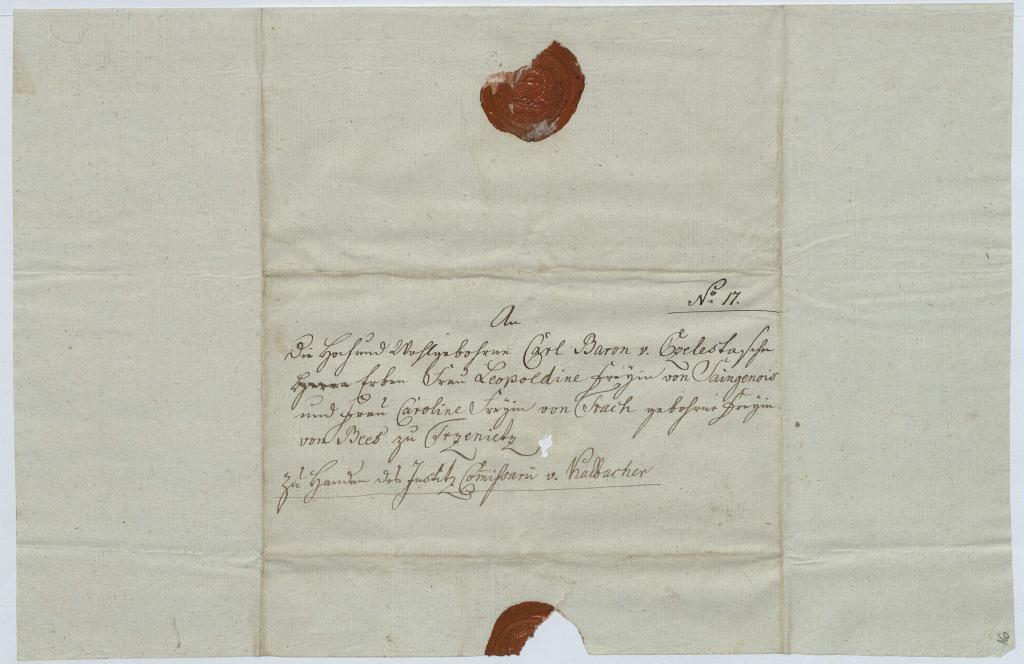 No. 17.
An
Die Hoch und Wohlgebohrne Carl Baron v. Czelestasche
Erben Frau Leopoldine Freyin von Saingenois
und Frau Caroline Freyin von Trach gebohrne Freyin
von Bees zu Trzenietz
Zu Handen des Justitz Com̅issarii v. Kalbacher